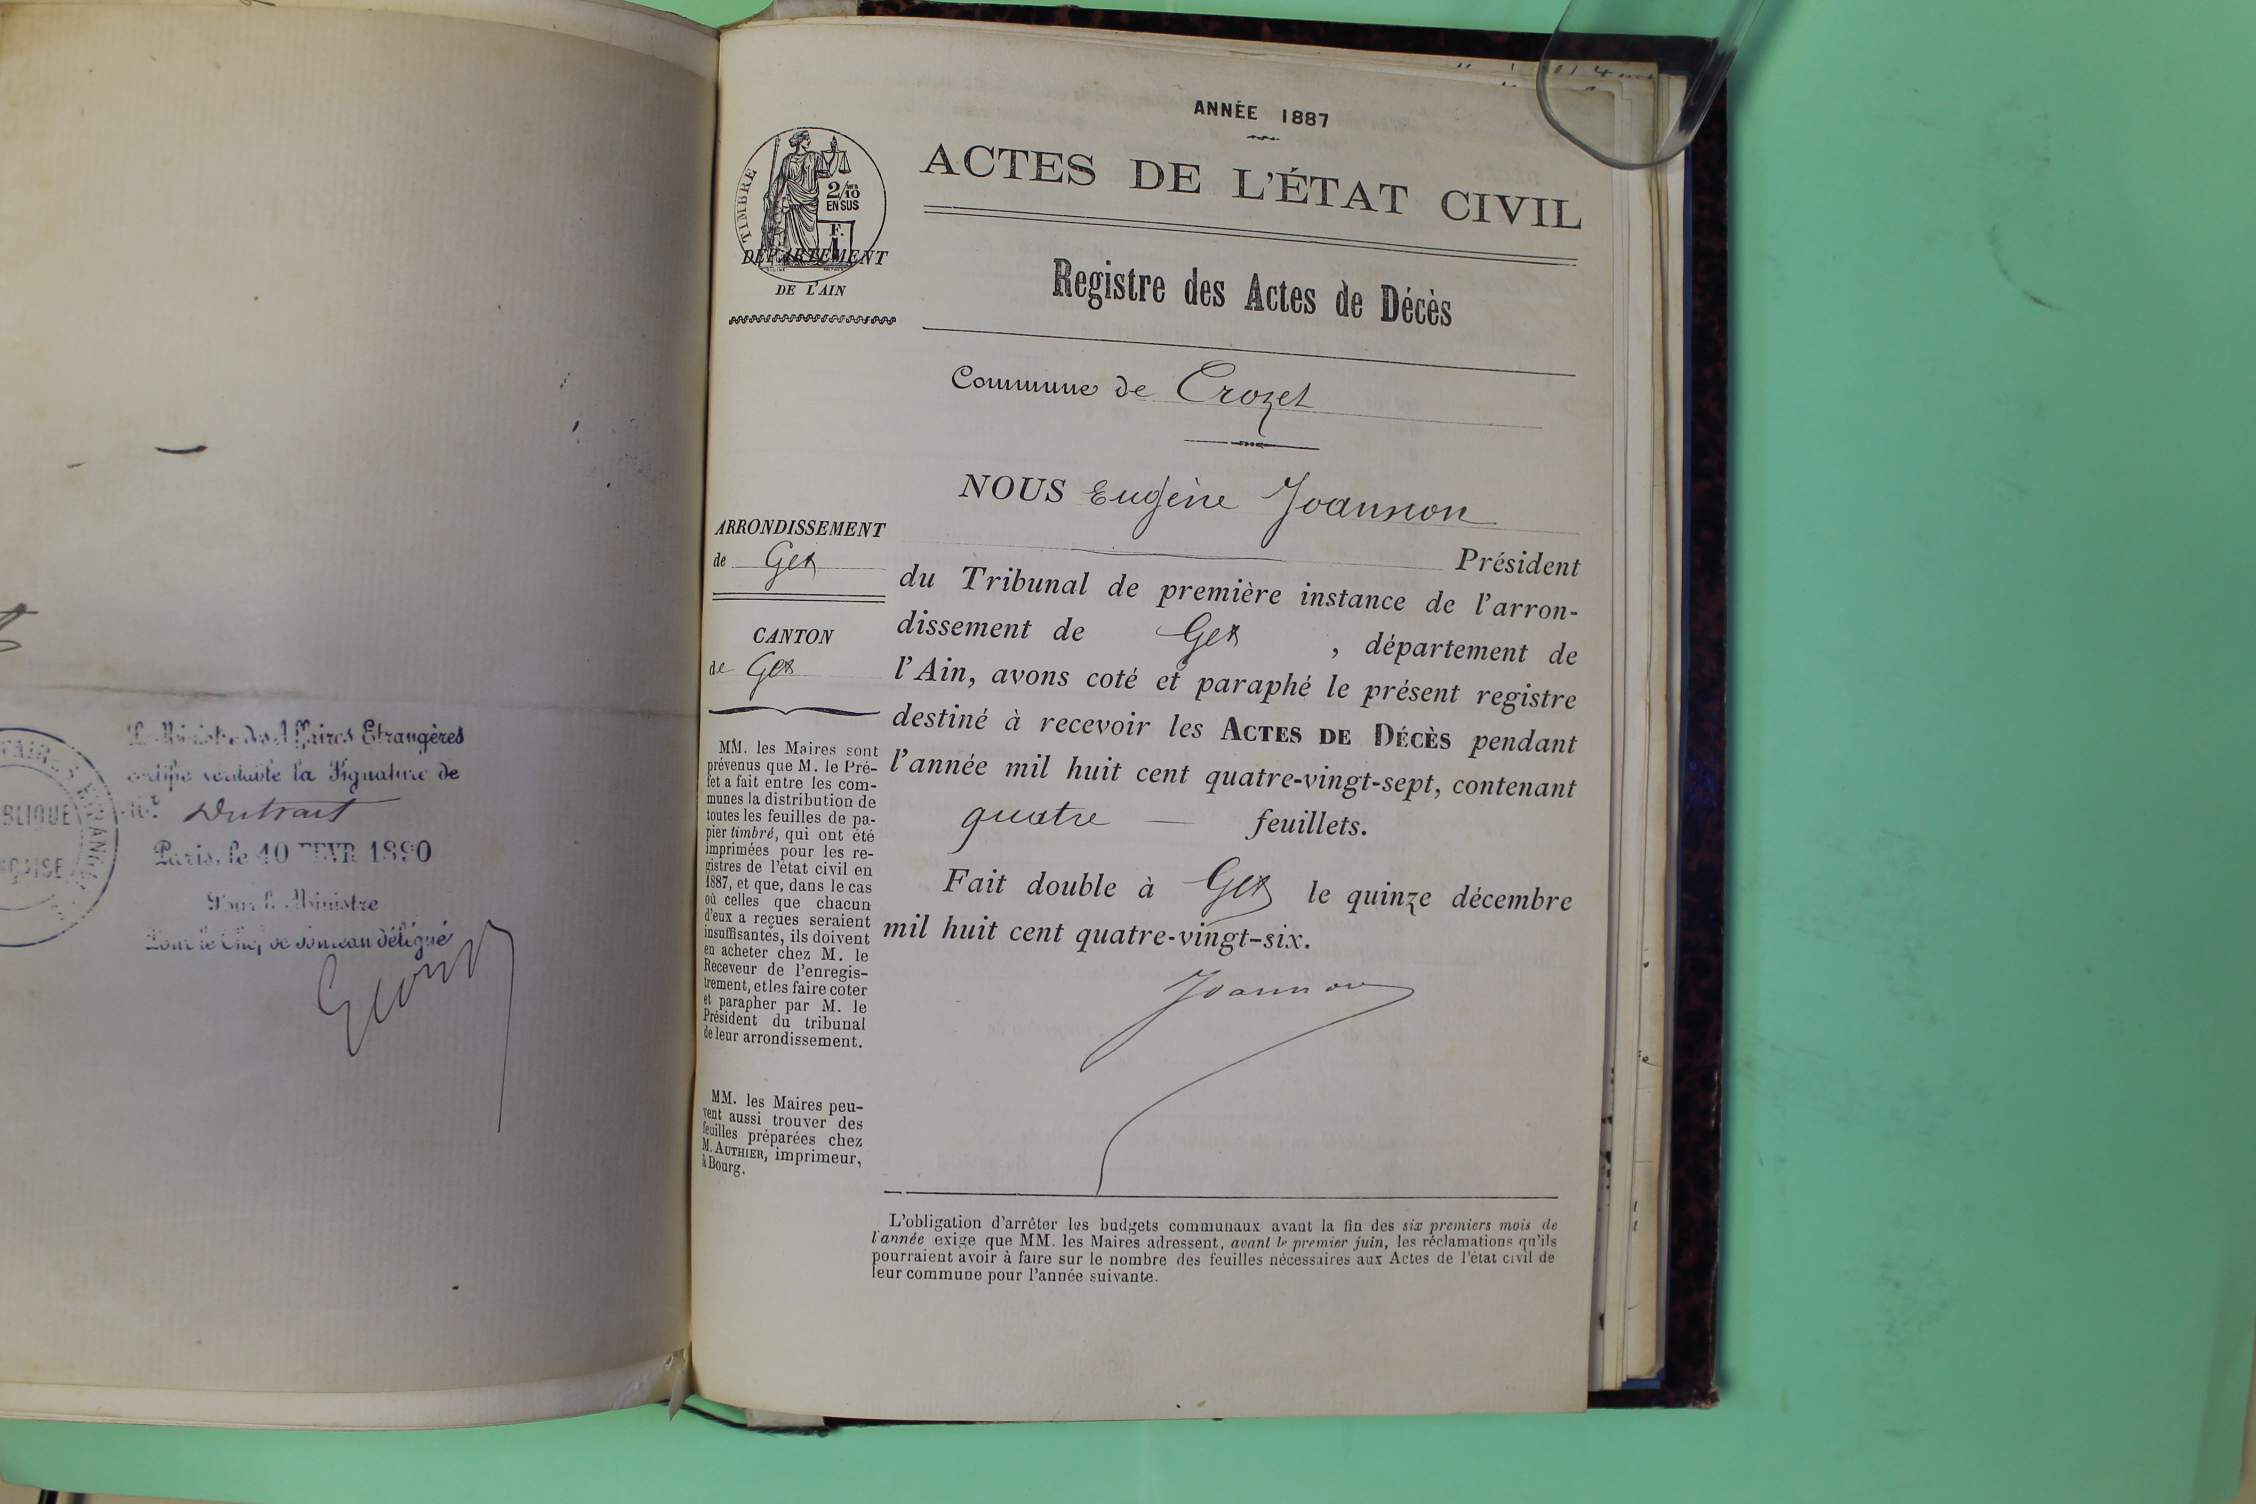 Le Ministre des Affaires Etrangères
certifie veritable la Signature de
Mr Dutrait
Paris, le 10 FEVR 1890
Pour le Ministre
Pour le Chef de bureau délégué
ANNÉE 1887
ACTES DE L'ÉTAT CIVIL
TIMBRE
2/10 EN SUS
F. 1
DÉPARTEMENT
DE L'AIN
Registre des Actes de Décès
Commune de Crozet
ARRONDISSEMENT
de Gex
CANTON
de Gex
MM. les Maires sont
prévenus que M. le Pré-
fet a fait entre les com-
munes la distribution de
toutes les feuilles de pa-
pier timbré, qui ont été
imprimées pour les re-
gistres de l'état civil en
1887, et que, dans le cas
où celles que chacun
d'eux a reçues seraient
insuffisantes, ils doivent
en acheter chez M. le
Receveur de l'enregis-
trement, et les faire coter
et parapher par M. le
Président du tribunal
de leur arrondissement.
MM. les Maires peu-
vent aussi trouver des
feuilles préparées chez
M. AUTHIER, imprimeur,
à Bourg.
NOUS Eugène Joannon
Président
du Tribunal de première instance de l'arron-
dissement de Gex , département de
l'Ain, avons coté et paraphé le présent registre
destiné à recevoir les ACTES DE DÉCÈS pendant
l'année mil huit cent quatre-vingt-sept, contenant
quatre — feuillets.
Fait double à Gex le quinze décembre
mil huit cent quatre-vingt-six.
Joannon
L'obligation d'arrêter les budgets communaux avant la fin des six premiers mois de
l'année exige que MM. les Maires adressent, avant le premier juin, les réclamations qu'ils
pourraient avoir à faire sur le nombre des feuilles nécessaires aux Actes de l'état civil de
leur commune pour l'année suivante.